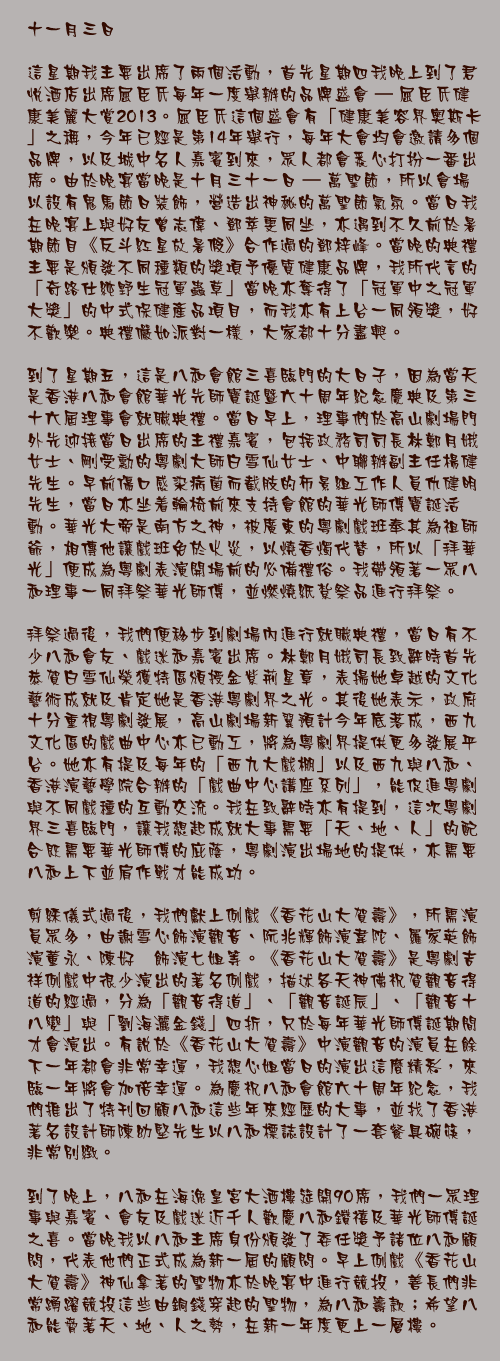 十一月三日
這星期我主要出席了兩個活動，首先星期四我晚上到了君
悅酒店出席屈臣氏每年一度舉辦的品牌盛會 — 屈臣氏健
康美麗大賞2013。屈臣氏這個盛會有「健康美容界奧斯卡
」之稱，今年已經是第14年舉行，每年大會均會邀請多個
品牌，以及城中名人嘉賓到來，眾人都會悉心打扮一番出
席。由於晚宴當晚是十月三十一日 — 萬聖節，所以會場
以設有鬼馬節日裝飾，營造出神秘的萬聖節氣氛。當日我
在晚宴上與好友曾志偉、鄧萃雯同坐，亦遇到不久前於暑
期節目《反斗紅星放暑假》合作過的鄧梓峰。當晚的典禮
主要是頒發不同種類的獎項予優質健康品牌，我所代言的
「奇路仕純野生冠軍蟲草」當晚亦奪得了「冠軍中之冠軍
大獎」的中式保健產品項目，而我亦有上台一同領獎，好
不歡樂。典禮儼如派對一樣，大家都十分盡興。
到了星期五，這是八和會館三喜臨門的大日子，因為當天
是香港八和會館華光師傅寶誕暨六十周年紀念慶典及第三
十六屆理事會就職典禮。當日早上，理事們於高山劇場門
外先迎接當日出席的主禮嘉賓，包括政務司司長林鄭月娥
女士、剛受勳的粵劇大師白雪仙女士、中聯辦副主任楊健
先生。早前傷口感染病菌而截肢的布景組工作人員仇健明
先生，當日亦坐着輪椅前來支持會館的華光師傅寶誕活
動。華光大帝是南方之神，被廣東的粵劇戲班奉其為祖師
爺，相傳他讓戲班免於火災，以燒香燭代替，所以「拜華
光」便成為粵劇表演開場前的必備禮俗。我帶領著一眾八
和理事一同拜祭華光師傅，並燃燒紙紮祭品進行拜祭。
拜祭過後，我們便移步到劇場內進行就職典禮，當日有不
少八和會友、戲迷和嘉賓出席。林鄭月娥司長致辭時首先
恭賀白雪仙榮獲特區頒授金紫荊星章，表揚她卓越的文化
藝術成就及肯定她是香港粵劇界之光。其後她表示，政府
十分重視粵劇發展，高山劇場新翼預計今年底落成，西九
文化區的戲曲中心亦已動工，將為粵劇界提供更多發展平
台。她亦有提及每年的「西九大戲棚」以及西九與八和、
香港演藝學院合辦的「戲曲中心講座系列」，能促進粵劇
與不同戲種的互動交流。我在致辭時亦有提到，這次粵劇
界三喜臨門，讓我想起成就大事需要「天、地、人」的配
合既需要華光師傅的庇蔭，粵劇演出場地的提供，亦需要
八和上下並肩作戰才能成功。
剪綵儀式過後，我們獻上例戲《香花山大賀壽》，所需演
員眾多，由謝雪心飾演觀音、阮兆輝飾演韋陀、羅家英飾
演董永、陳好　飾演七姐等。《香花山大賀壽》是粵劇吉
祥例戲中很少演出的著名例戲，描述各天神佛祝賀觀音得
道的經過，分為「觀音得道」、「觀音誕辰」、「觀音十
八變」與「劉海灑金錢」四折，只於每年華光師傅誕期間
才會演出。有說於《香花山大賀壽》中演觀音的演員在餘
下一年都會非常幸運，我想心姐當日的演出這麼精彩，來
臨一年將會加倍幸運。為慶祝八和會館六十周年紀念，我
們推出了特刊回顧八和這些年來經歷的大事，並找了香港
著名設計師陳幼堅先生以八和標誌設計了一套餐具碗筷，
非常別緻。
到了晚上，八和在海逸皇宮大酒樓筵開90席，我們一眾理
事與嘉賓、會友及戲迷近千人歡慶八和鑽禧及華光師傅誕
之喜。當晚我以八和主席身份頒發了委任獎予諸位八和顧
問，代表他們正式成為新一屆的顧問。早上例戲《香花山
大賀壽》神仙拿著的聖物亦於晚宴中進行競投，善長們非
常踴躍競投這些由銅錢穿起的聖物，為八和籌款；希望八
和能憑著天、地、人之勢，在新一年度更上一層樓。